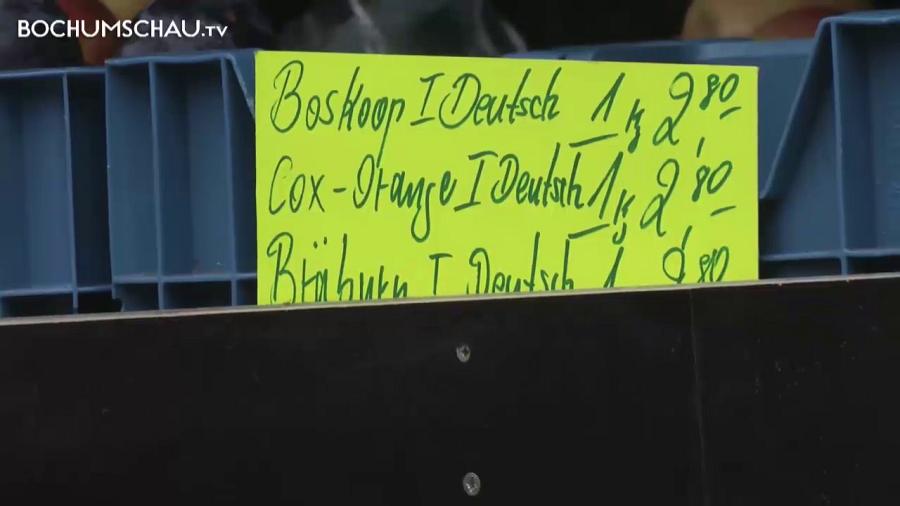 BOCHUMSCHAU.tv
Boskoop I Deutsch 1 kg 2,80
Cox-Orange I Deutsch 1 kg 2,80
Bräburn I Deutsch 1 2,80